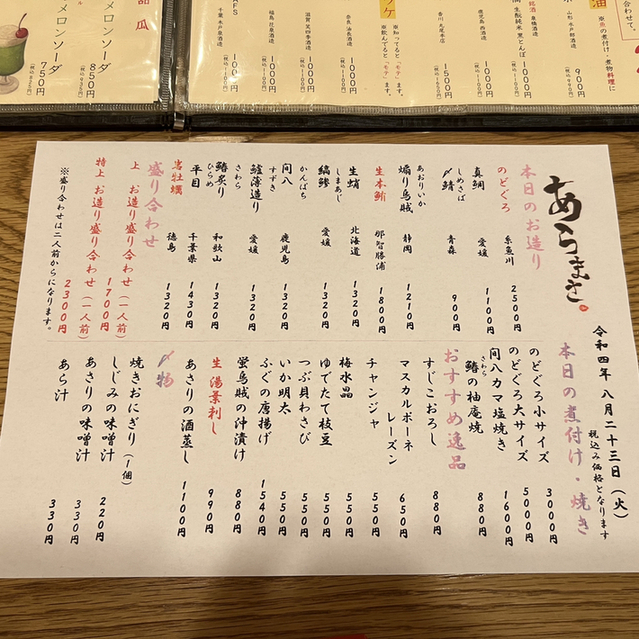 あらまさ
令和四年八月二十三日（火）
税込み価格となります
本日のお造り
のどぐろ 糸魚川 2500円
真鯛 愛媛 1100円
しめさば
〆鯖 青森 900円
あおりいか
煽り烏賊 静岡 1210円
生本鮪 那智勝浦 1800円
生蛸 北海道 1320円
しまあじ
縞鯵 愛媛 1320円
かんぱち
間八 鹿児島 1320円
すずき
鱸薄造り 愛媛 1320円
さわら
鰆炙り 和歌山 1320円
ひらめ
平目 千葉県 1430円
岩牡蠣 徳島 1320円
盛り合わせ
上 お造り盛り合わせ（一人前）
1700円
特上 お造り盛り合わせ（一人前）
2300円
※盛り合わせは二人前からになります。
本日の煮付け・焼き
のどぐろ小サイズ 3000円
のどぐろ大サイズ 5000円
間八カマ塩焼き 1600円
さわら
鰆の柚庵焼 880円
おすすめ逸品
すじこおろし 880円
マスカルポーネ
レーズン 650円
チャンジャ 550円
梅水晶 550円
ゆでたて枝豆 550円
つぶ貝わさび 550円
いか明太 550円
ふぐの唐揚げ 1540円
蛍烏賊の沖漬け 880円
生湯葉刺し 990円
あさりの酒蒸し 1100円
〆物
焼きおにぎり（1個） 220円
しじみの味噌汁 330円
あさりの味噌汁 330円
あら汁 330円
メロンソーダ
850円
メロンソーダ
750円